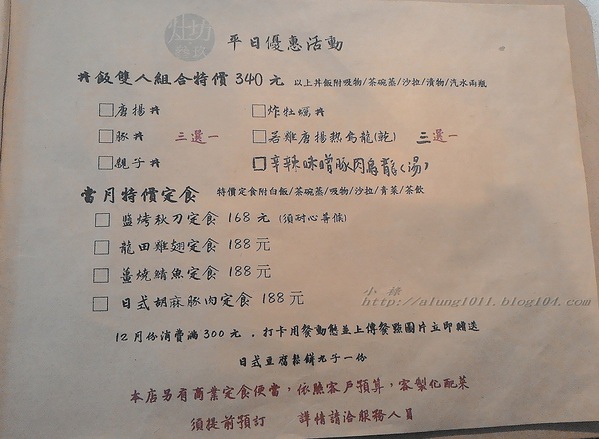 灶坊
平日優惠活動
丼飯雙人組合特價340元 以上丼飯附吸物/茶碗蒸/沙拉/漬物/汽水兩瓶
□唐揚丼 □炸牡蠣丼
□豚丼 三選一 □若雞唐揚熱烏龍(乾) 三選一
□親子丼 □辛辣味噌豚肉烏龍(湯)
當月特價定食 特價定食附白飯/茶碗蒸/吸物/沙拉/青菜/茶飲
□ 鹽烤秋刀定食 168元 (須耐心等候)
□ 龍田雞翅定食 188元
□ 薑燒鯖魚定食 188元
□ 日式胡麻豚肉定食 188元
小祿
http://alung1011.blog104.com
12月份消費滿300元,打卡用餐動態並上傳餐點圖片立即贈送
日式豆腐鬆餅丸子一份
本店另有商業定食便當,依照客戶預算,客製化配菜
須提前預訂 詳情請洽服務人員